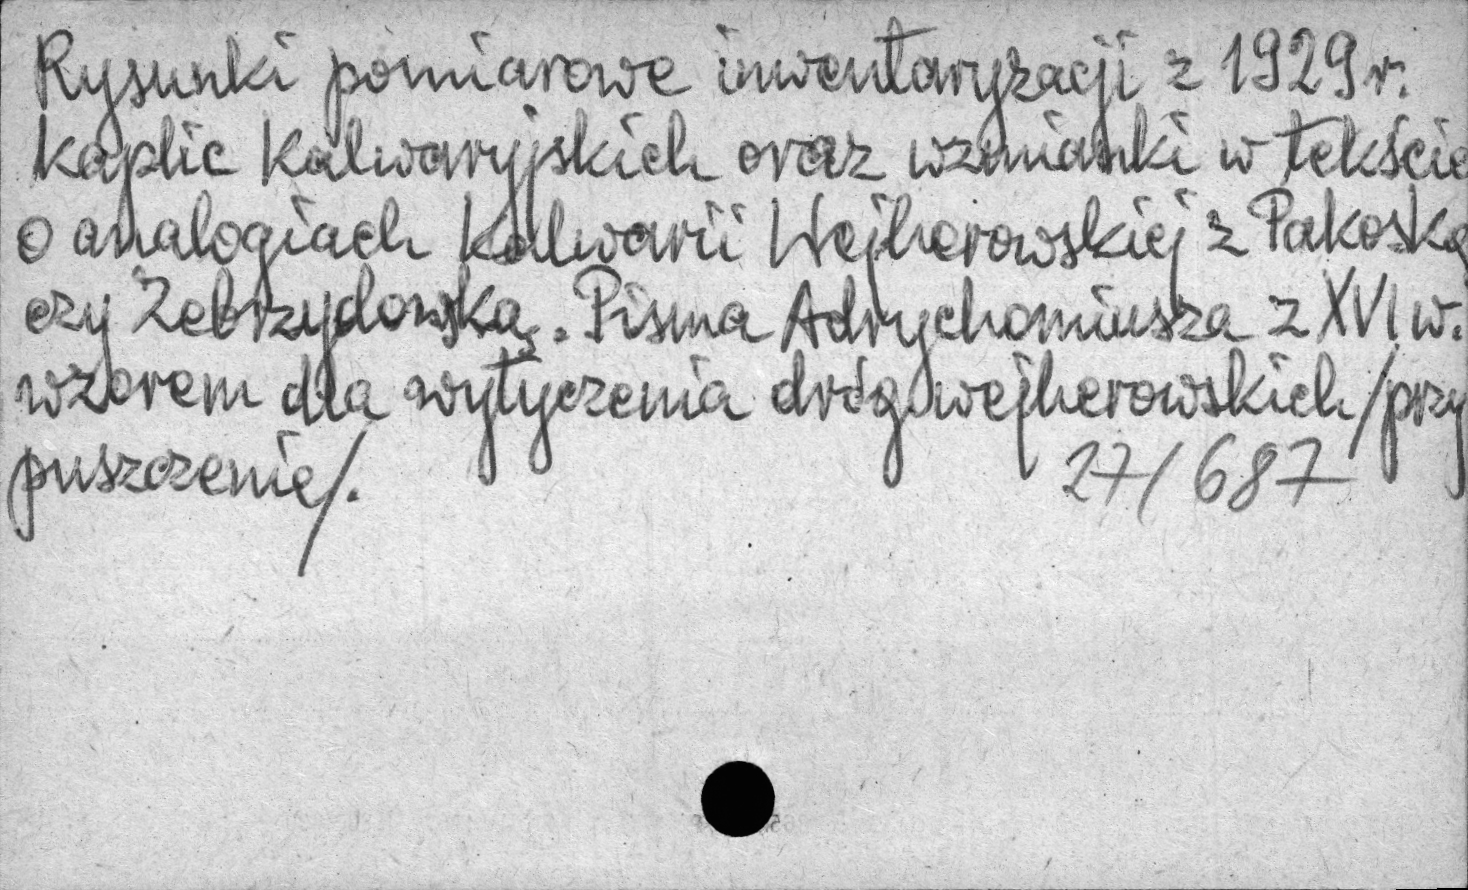 Rysunki pomiarowe inwentaryzacji z 1929 r.
kaplic Kalwaryjskich oraz wzmianki w tekście
o analogiach Kalwarii Wejherowskiej z Pakoską
czy Zebrzydowską. Pisma Adrychomiusza z XVI w.
wzorem dla wytyczenia dróg wejherowskich /przy
puszczenie/.
27/687